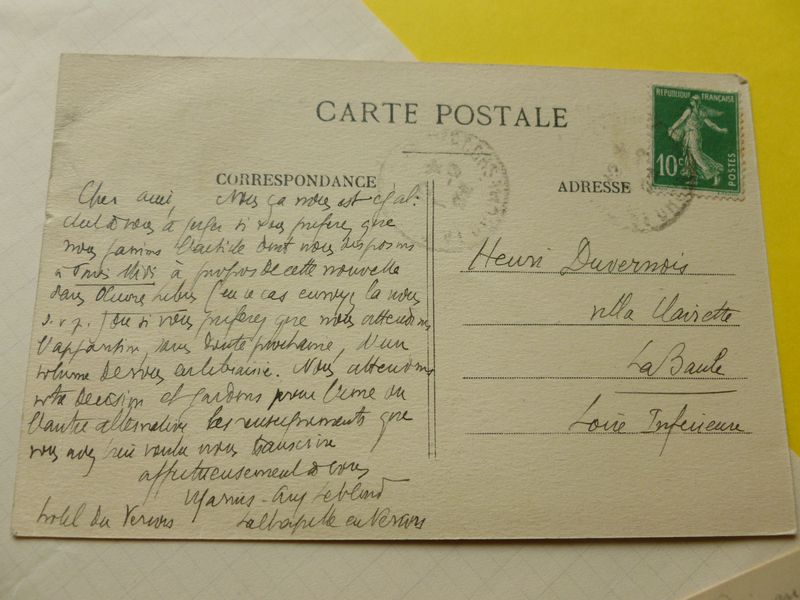 CARTE POSTALE
CORRESPONDANCE
ADRESSE
REPUBLIQUE FRANÇAISE
10c
POSTES
Cher ami, Nous ça nous est égal:
à vous à juger si vous préférez que
nous l'article dont nous disposons
à à propos de cette nouvelle
dans Œuvres Libres (en ce cas envoyez la nous
s.v.p.) ou si vous préférez que nous attendions
l'apparition, sans doute prochaine, d'un
volume de vous en librairie. Nous attendons
votre décision et gardons pour l'une ou
l'autre alternative les renseignements que
vous avez bien voulu nous transcrire
affectueusement à vous
Marius-Ary Leblond
hotel du Vercors La Chapelle en Vercors
Henri Duvernois
villa Clairette
La Baule
Loire Inférieure